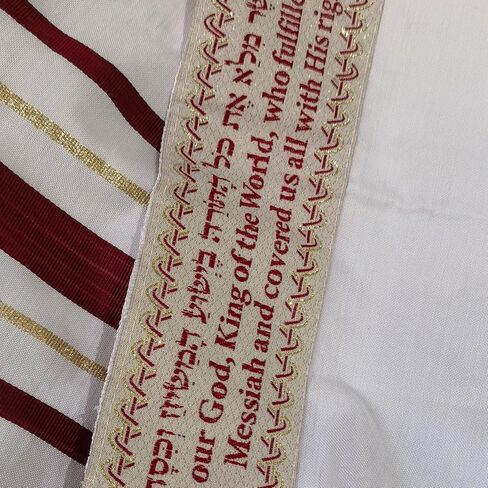 מלא את כל התורה בישוע המשיח
our God, King of the World, who fulfille
Messiah and covered us all with His rig